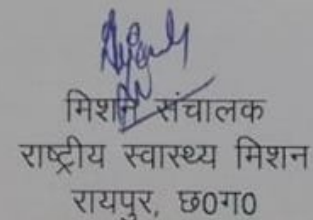 मिशन संचालक
राष्ट्रीय स्वास्थ्य मिशन
रायपुर, छ०ग०